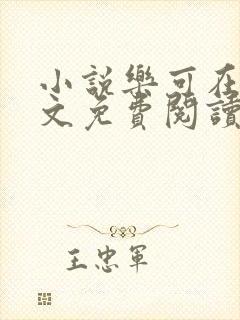 小説樂可在
文免費閱讀
王忠軍